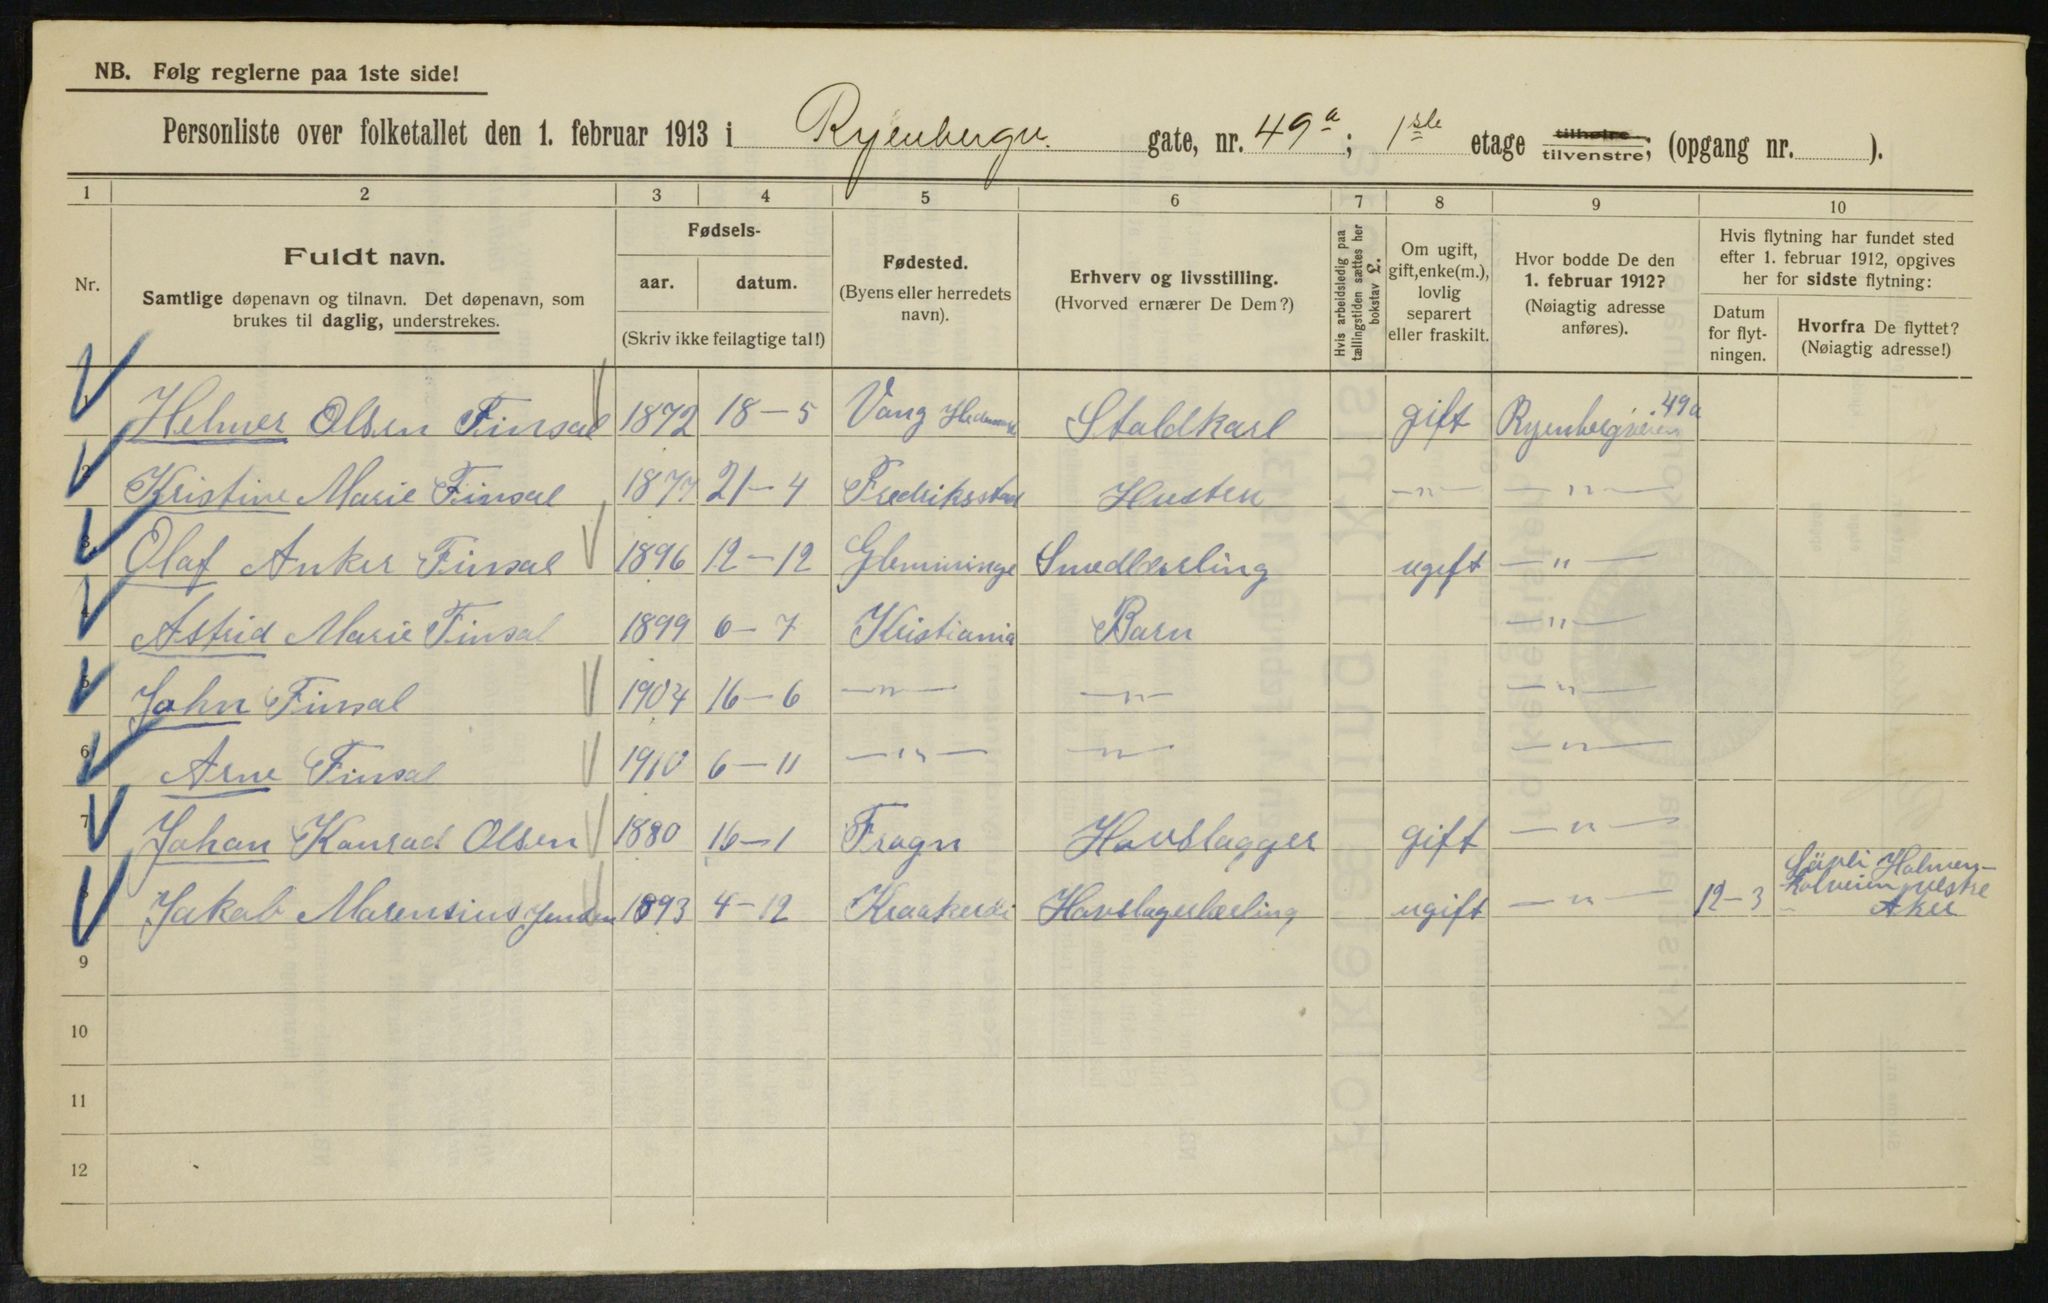 NB. Følg reglerne paa 1ste side!
Personliste over folketallet den 1. februar 1913 i Ryenbergv. gate, nr. 49a; 1ste etage tilhøire, tilvenstre, (opgang nr. ).
1 2 3 4 5 6 7 8 9 10
Nr.
Fuldt navn.
Samtlige døpenavn og tilnavn. Det døpenavn, som
brukes til daglig, understrekes.
Fødsels-
aar. datum.
(Skriv ikke feilagtige tal!)
Fødested.
(Byens eller herredets
navn).
Erhverv og livsstilling.
(Hvorved ernærer De Dem?)
Hvis arbeidsledig paa
tællingstiden sættes her
bokstav L.
Om ugift,
gift, enke(m.),
lovlig
separert
eller fraskilt.
Hvor bodde De den
1. februar 1912?
(Nøiagtig adresse
anføres).
Hvis flytning har fundet sted
efter 1. februar 1912, opgives
her for sidste flytning:
Datum
for flyt-
ningen.
Hvorfra De flyttet?
(Nøiagtig adresse!)
1 Helmer Olsen Finsal 1872 18-5 Vang Hedemark Staldkarl gift Ryenbergveien 49a
2 Kristine Marie Finsal 1877 21-4 Fredriksstad Husten -"- -"-
3 Olaf Anker Finsal 1896 12-12 Glemminge Smedlærling ugift -"-
4 Astrid Marie Finsal 1899 6-7 Kristiania Barn -"-
5 John Finsal 1904 16-6 -"- -"- -"-
6 Arne Finsal 1910 6-11 -"- -"- -"-
7 Johan Konrad Olsen 1880 16-1 Frogn Hovslagger gift -"-
8 Jakob Marensius Jensen 1893 4-12 Kraakerøi Hovslagerlærling ugift -"- 12-3 Holmen-
kolveien vestre
Aker
9
10
11
12